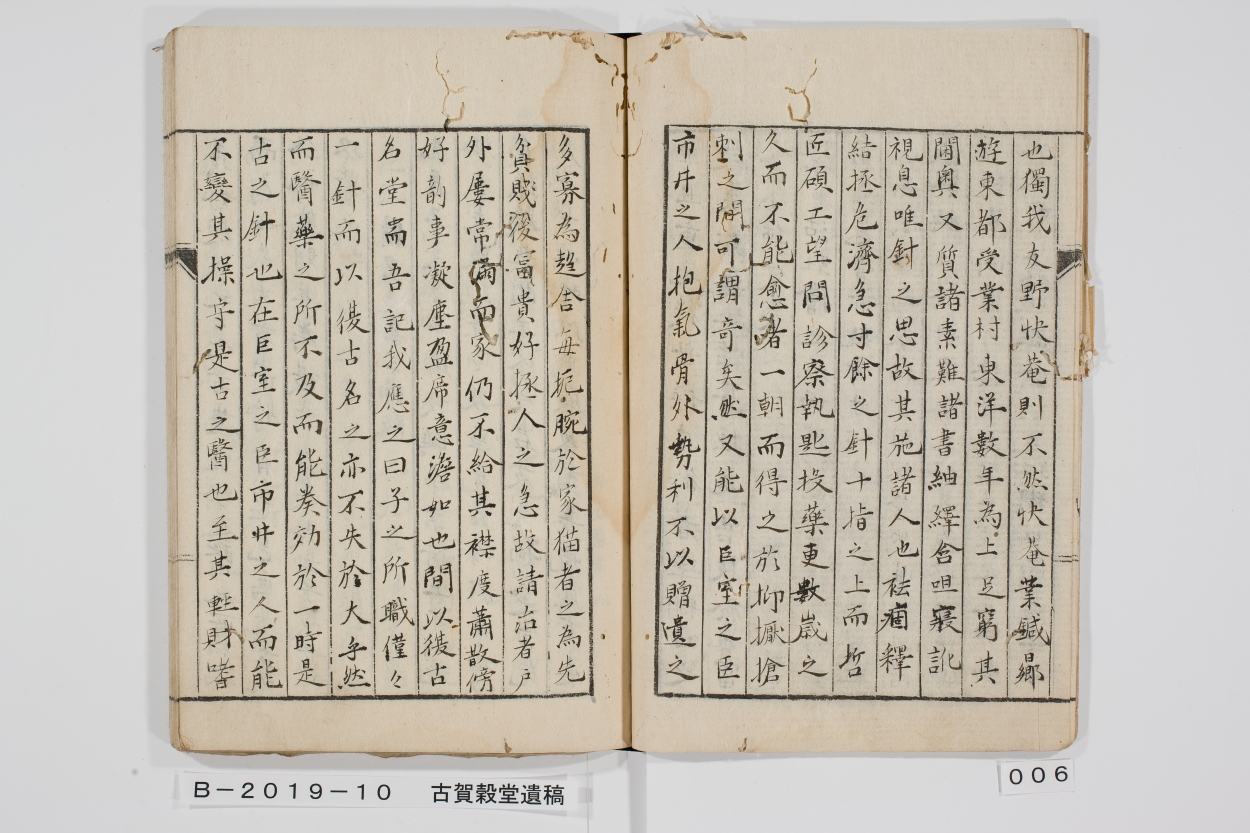 也獨我友野快菴則不然快菴業鍼鄉
游東都受業村東洋數年為上足窮其
閫奧又質諸素難諸書紬繹含咀寢訛
視息唯針之思故其施諸人也袪痼釋
結拯危濟急寸餘之針十指之上而哲
匠碩工望問診察執匙投藥更數歲之
久而不能愈者一朝而得之於抑擫搶
刺之間可謂奇矣然又能以巨室之臣
市井之人抱氣骨外勢利不以贈遺之
多寡為趨舍每扼腕於家猫者之為先
貧賤後冨貴好拯人之急故請治者戶
外屢常滿而家仍不給其襟度蕭散傍
好韵事凝塵盈席意澹如也間以復古
名堂耑吾記我應之曰子之所職僅々
一針而以復古名之亦不失於大乎然
而醫藥之所不及而能奏効於一時是
古之針也在巨室之臣市井之人而能
不變其操守是古之醫也至其輕財嗜
B－2019－10　古賀穀堂遺稿
006